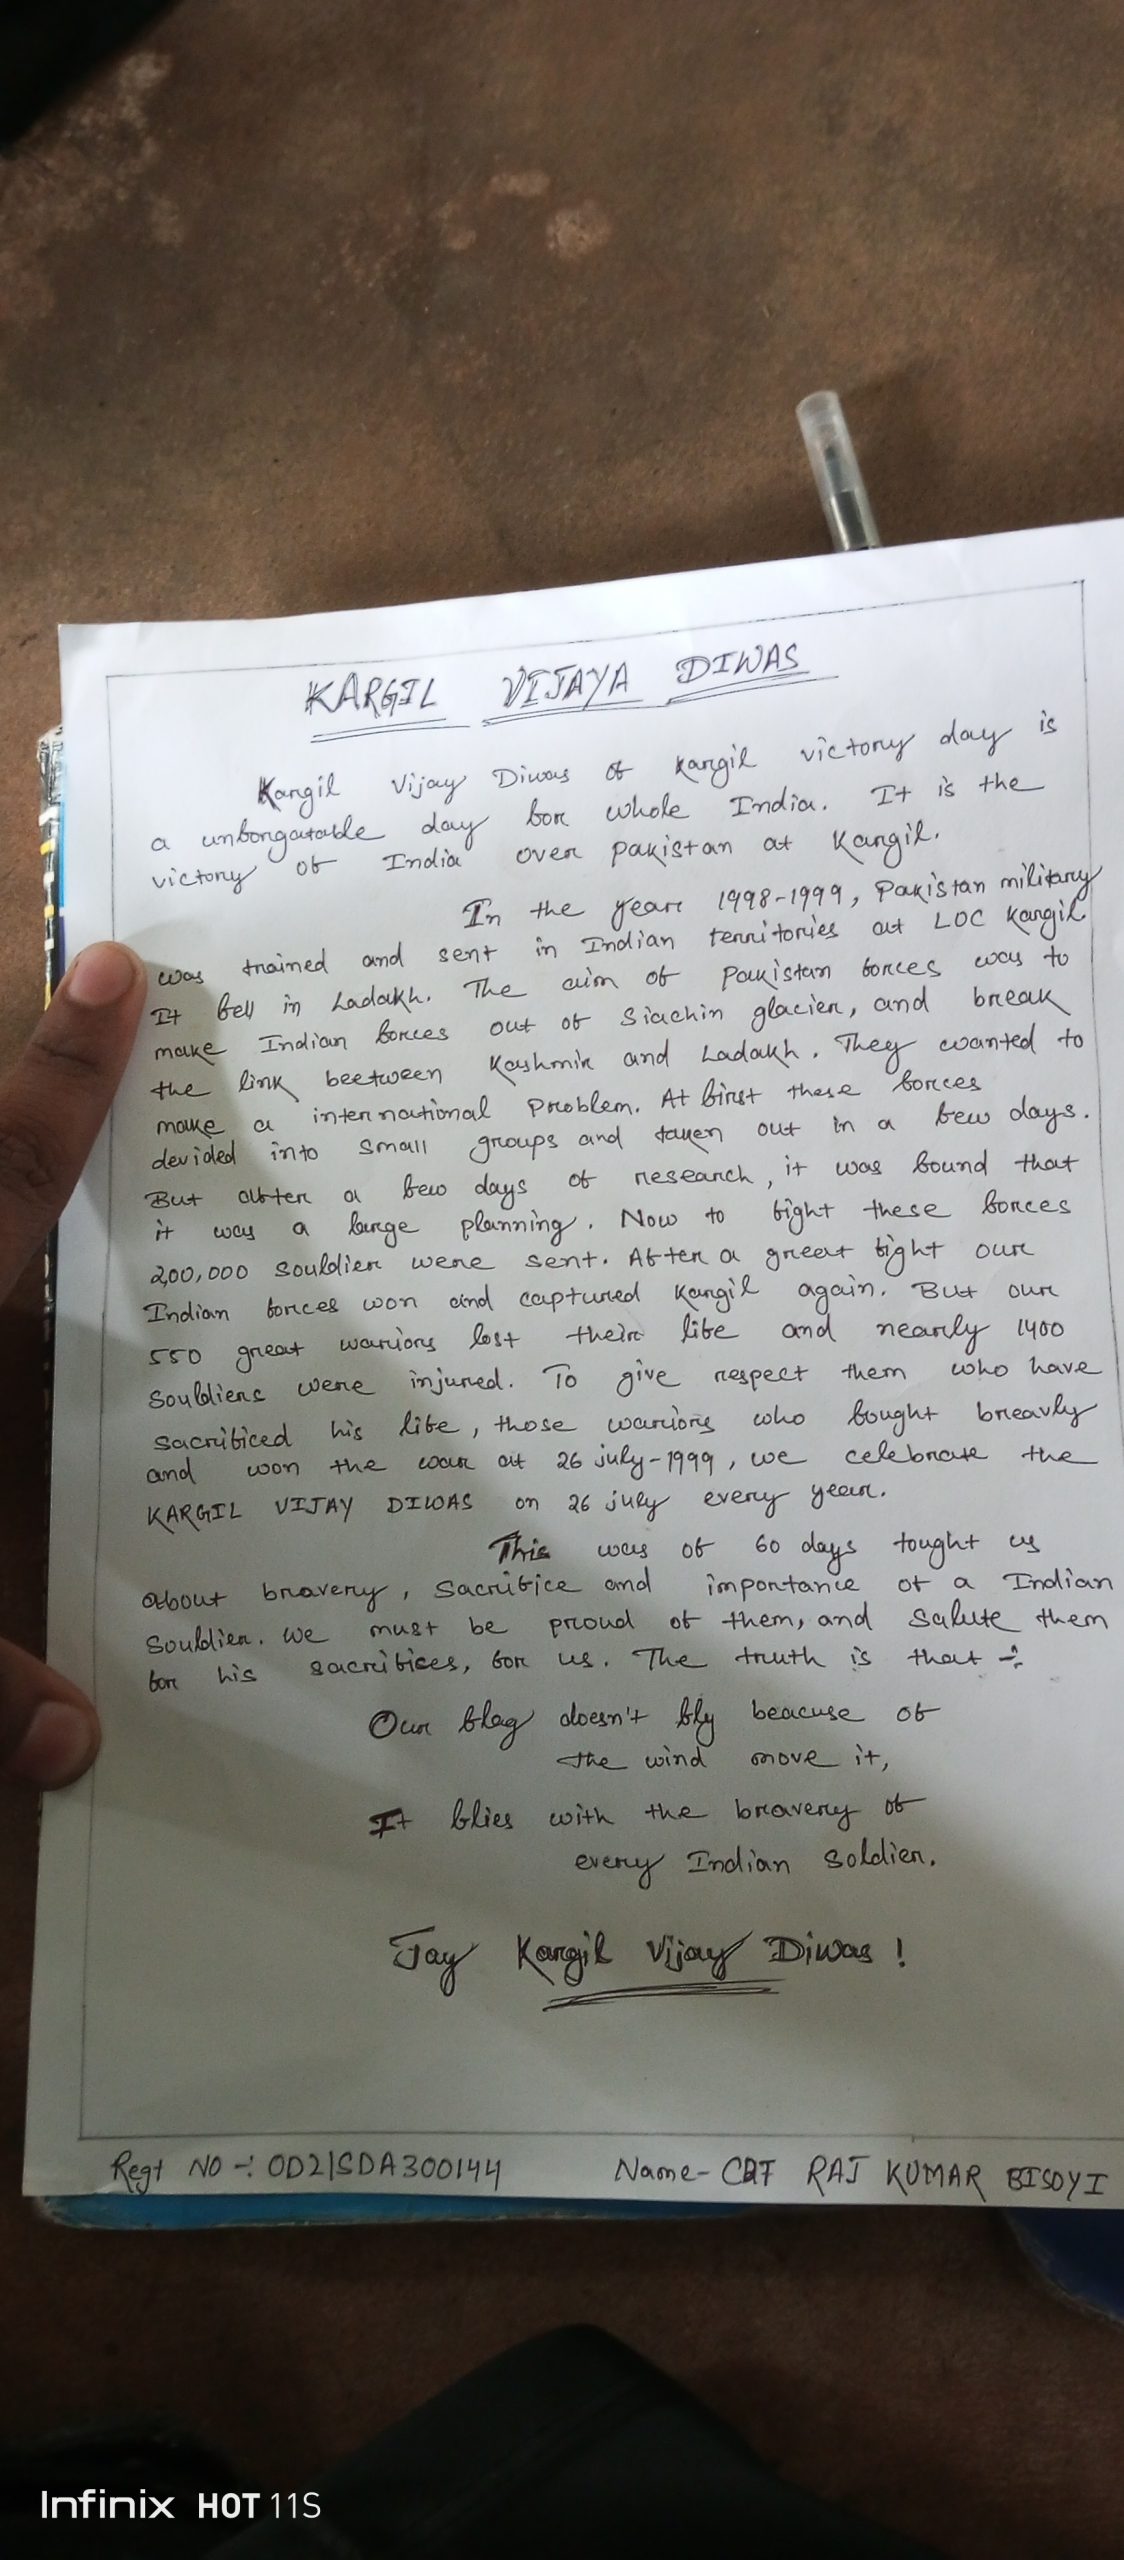 KARGIL VIJAYA DIWAS
Kargil Vijay Diwas of Kargil victory day is
a unforgatable day for whole India. It is the
victory of India over pakistan at Kargil.
In the year 1998-1999, Pakistan military
was trained and sent in Indian territories at LOC Kargil.
It fell in Ladakh. The aim of Pakistan forces was to
make Indian forces out of Siachin glacier, and break
the link beetween Kashmir and Ladakh. They wanted to
make a international problem. At first these forces
devided into small groups and taken out in a few days.
But after a few days of research, it was found that
it was a large planning. Now to fight these forces
2,00,000 souldier were sent. After a great fight our
Indian forces won and captured Kargil again. But our
550 great warriors lost their life and nearly 1400
souldiers were injured. To give respect them who have
sacrificed his life, those warriors who fought breavly
and won the war at 26 july-1999, we celebrate the
KARGIL VIJAY DIWAS on 26 july every year.
This was of 60 days tought us
about bravery, sacrifice and importance of a Indian
souldier. We must be proud of them, and salute them
for his sacrifises, for us. The truth is that ÷
Our flag doesn't fly beacuse of
the wind move it,
It flies with the bravery of
every Indian soldier.
Jay Kargil Vijay Diwas !
Regt NO -: OD21SDA300144 Name- CDT RAJ KUMAR BISOYI
Infinix HOT 11S